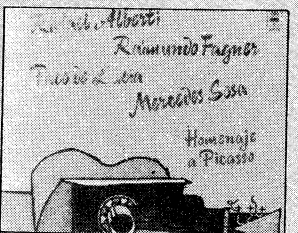 Rafael Alberti
Raimundo Fagner
Paco de Lucia
Mercedes Sosa
Homenaje
a Picasso